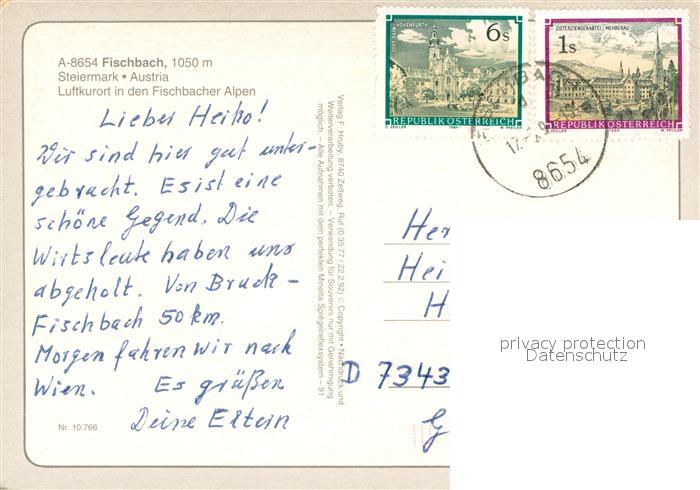 A-8654 Fischbach, 1050 m
Steiermark • Austria
Luftkurort in den Fischbacher Alpen
Lieber Heiko!
Wir sind hier gut unter-
gebracht. Es ist eine
schöne Gegend. Die
Wirtsleute haben uns
abgeholt. Von Bruck -
Fischbach 50 km.
Morgen fahren wir nach
Wien. Es grüßen
Deine Eltern
Nr. 10.766
Verlag F. Hruby, 8740 Zeltweg, Ruf (0 35 77 / 22 2 92) © Copyright • Nachdruck und
Weiterverarbeitung verboten. – Verwendung für Souvenirs nur mit Genehmigung
möglich. – Alle Aufnahmen mit dem perfekten Minolta Spiegelreflexsystem – 91
STIFT REIN-HOHENFURTH
6s
REPUBLIK ÖSTERREICH
ZISTERZIENSERABTEI MEHRERAU
1s
REPUBLIK ÖSTERREICH
8654
Her
Hei
H
D 7343
G
privacy protection
Datenschutz